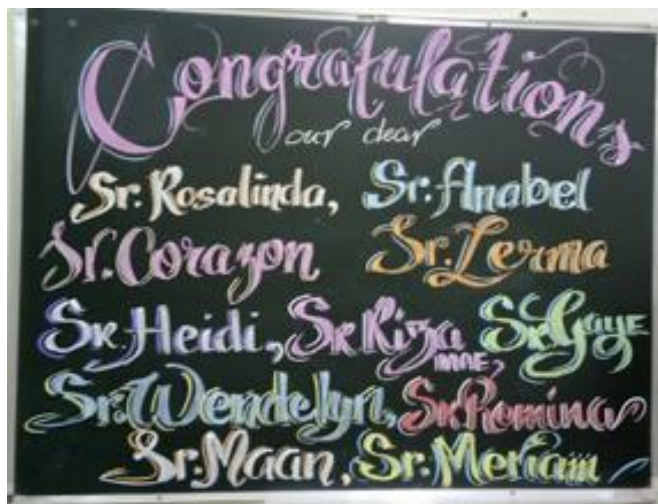 Congratulations
our dear
Sr. Rosalinda, Sr. Anabel
Sr. Corazon Sr. Lerma
Sr. Heidi, Sr. Riza MAE, Sr. Gaye
Sr. Wendelyn, Sr. Romina
Sr. Maan, Sr. Meriam